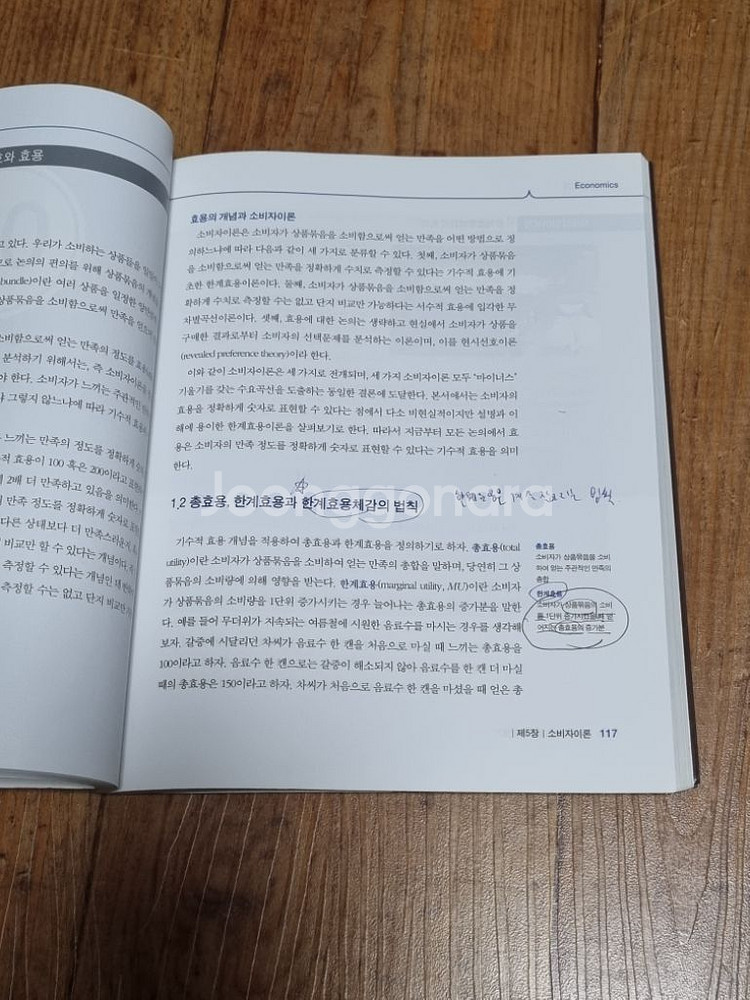 와 효용
고 있다. 우리가 소비하는 상품들을
으로 논의의 편의를 위해 상품묶음의
bundle)이란 여러 상품을 일정한
상품묶음을 소비함으로써 만족을
소비함으로써 얻는 만족의 정도를
분석하기 위해서는, 즉 소비자이론을
야 한다. 소비자가 느끼는 주관적인
그렇지 않느냐에 따라 기수적 효용
느끼는 만족의 정도를 정확하게
적 효용이 100 혹은 200이라고
2배 더 만족하고 있음을 의미
만족 정도를 정확하게 숫자로
다른 상태보다 더 만족스러운지
비교만 할 수 있다는 개념이다. 즉
측정할 수 있다는 개념인 데 반해
측정할 수는 없고 단지 비교만
Economics
효용의 개념과 소비자이론
소비자이론은 소비자가 상품묶음을 소비함으로써 얻는 만족을 어떤 방법으로 정
의하느냐에 따라 다음과 같이 세 가지로 분류할 수 있다. 첫째, 소비자가 상품묶음
을 소비함으로써 얻는 만족을 정확하게 수치로 측정할 수 있다는 기수적 효용에 기
초한 한계효용이론이다. 둘째, 소비자가 상품묶음을 소비함으로써 얻는 만족을 정
확하게 수치로 측정할 수는 없고 단지 비교만 가능하다는 서수적 효용에 입각한 무
차별곡선이론이다. 셋째, 효용에 대한 논의는 생략하고 현실에서 소비자가 상품을
구매한 결과로부터 소비자의 선택문제를 분석하는 이론이며, 이를 현시선호이론
(revealed preference theory)이라 한다.
이와 같이 소비자이론은 세 가지로 전개되며, 세 가지 소비자이론 모두 “마이너스”
기울기를 갖는 수요곡선을 도출하는 동일한 결론에 도달한다. 본서에서는 소비자의
효용을 정확하게 숫자로 표현할 수 있다는 점에서 다소 비현실적이지만 설명과 이
해에 용이한 한계효용이론을 살펴보기로 한다. 따라서 지금부터 모든 논의에서 효
용은 소비자의 만족 정도를 정확하게 숫자로 표현할 수 있다는 기수적 효용을 의미
한다.
1.2 총효용, 한계효용과 한계효용체감의 법칙
법칙
Joonggonara
기수적 효용 개념을 적용하여 총효용과 한계효용을 정의하기로 하자. 총효용(total
utility)이란 소비자가 상품묶음을 소비하여 얻는 만족의 총합을 말하며, 당연히 그 상
품묶음의 소비량에 의해 영향을 받는다. 한계효용(marginal utility, MU)이란 소비자
가 상품묶음의 소비량을 1단위 증가시키는 경우 늘어나는 총효용의 증가분을 말한
다. 예를 들어 무더위가 지속되는 여름철에 시원한 음료수를 마시는 경우를 생각해
보자. 갈증에 시달리던 차씨가 음료수 한 캔을 처음으로 마실 때 느끼는 총효용을
100이라고 하자. 음료수 한 캔으로는 갈증이 해소되지 않아 음료수를 한 캔 더 마실
때의 총효용은 150이라고 하자. 차씨가 처음으로 음료수 한 캔을 마셨을 때 얻은 총
총효용
소비자가 상품묶음을 소비
하여 얻는 주관적인 만족의
총합
한계효용
소비자가 상품묶음의 소비
를 1단위 증가시켰을 때 얻
어지는 총효용의 증가분
제5장 | 소비자이론 117